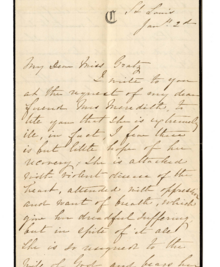 St. Louis
Jan'y 2nd
My Dear Miss Gratz
I write to you
at the request of my dear
friend Mrs Meredith, to
let you that she is extremely
ill, in fact, I fear there
is but little hope of her
recovery; she is attacked
with violent disease of the
heart, attended with oppression
and want of breath, which
give her dreadful suffering
but in spite of it all
she is so resigned to the
will of God, and bears her